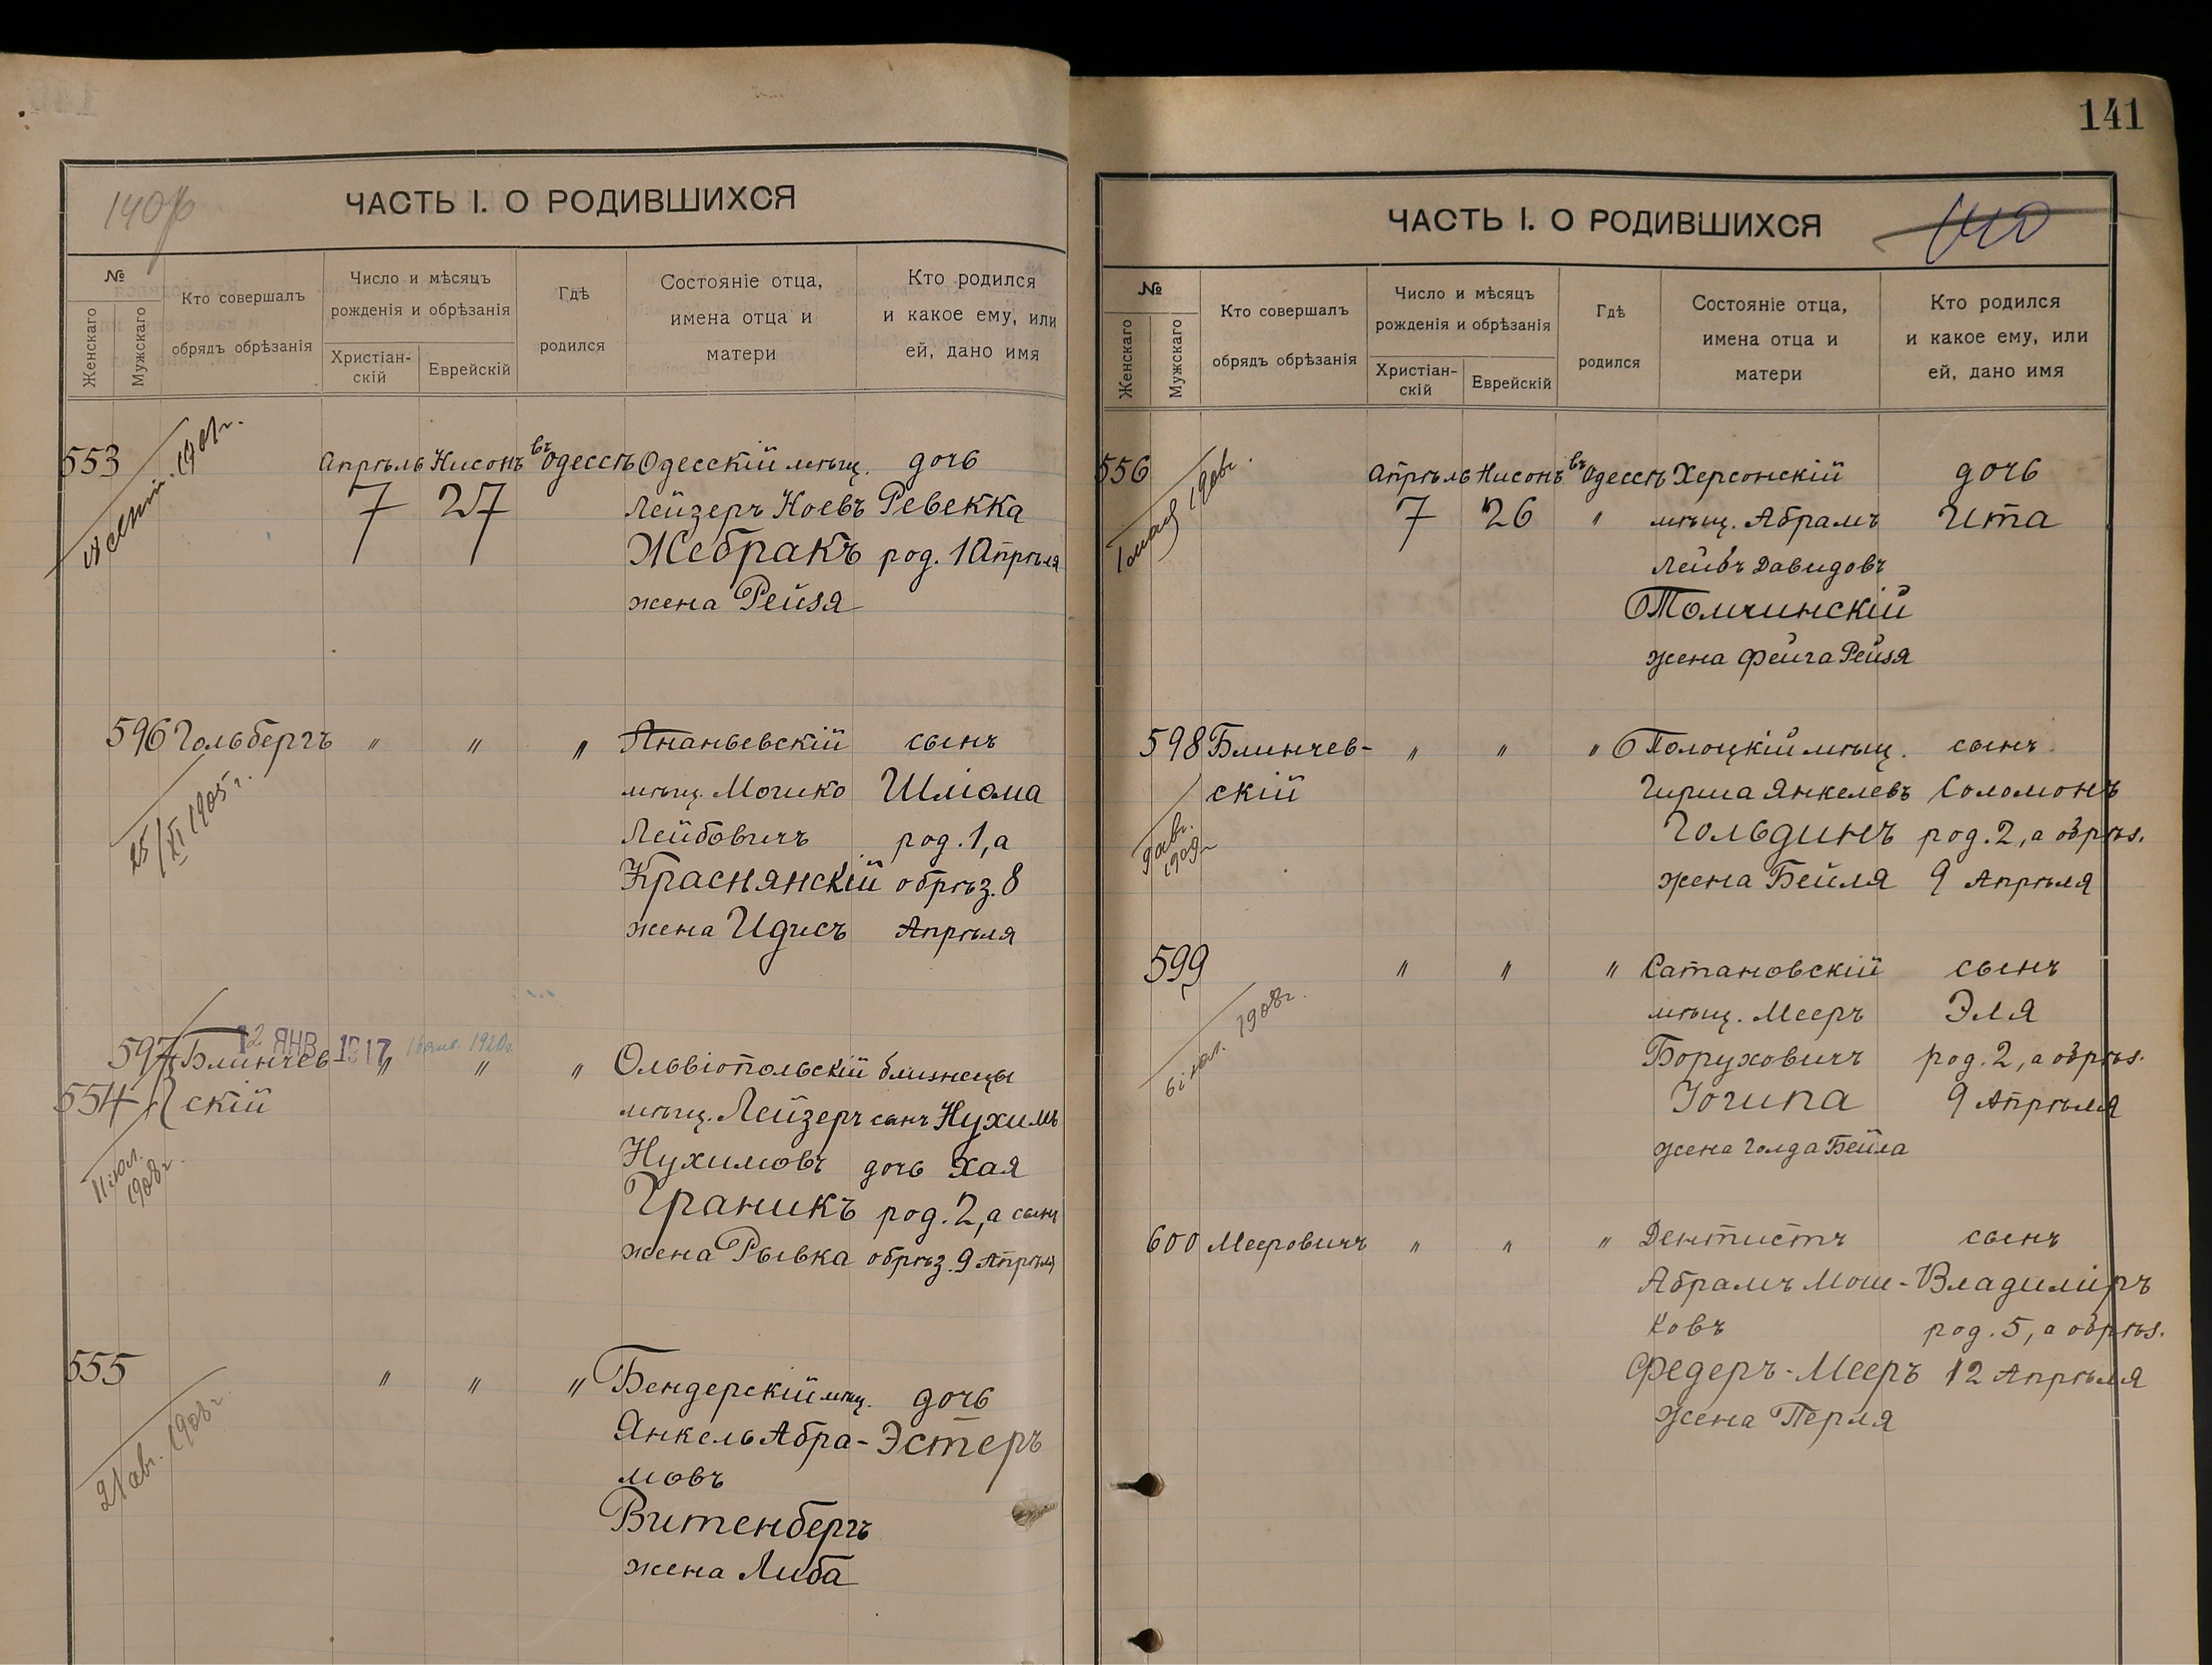 140
ЧАСТЬ I. О РОДИВШИХСЯ
№
Женскаго
Мужскаго
Кто совершалъ
обрядъ обрѣзанія
Число и мѣсяцъ
рожденія и обрѣзанія
Христіан-
скій
Еврейскій
Гдѣ
родился
Состояніе отца,
имена отца и
матери
Кто родился
и какое ему, или
ей, дано имя
553 Апрѣль Нисонъ въ Одессѣ Одесскій мѣщ. дочь
7 27 Лейзеръ Ноевъ Ревекка
Жебракъ род. 1 Апрѣля
жена Рейзя
596 Гольбергъ " " " Ананьевскій сынъ
мѣщ. Мошко Шліома
25/XI 1905 г. Лейбовичъ род. 1, а
Краснянскій обрѣз. 8
жена Идисъ Апрѣля
12 ЯНВ 1917
597 Блинчев " " " Ольвіопольскій близнецы
554 скій мѣщ. Лейзеръ сынъ Нухимъ
11 іюл. 1908 г. Нухимовъ дочь Хая
Граникъ род. 2, а сынъ
жена Рывка обрѣз. 9 Апрѣля
555 " " " Бендерскій мѣщ. дочь
21 авг. 1908 г. Янкель Абра- Эстеръ
мовъ
Витенбергъ
жена Либа
141
ЧАСТЬ I. О РОДИВШИХСЯ
140
№
Женскаго
Мужскаго
Кто совершалъ
обрядъ обрѣзанія
Число и мѣсяцъ
рожденія и обрѣзанія
Христіан-
скій
Еврейскій
Гдѣ
родился
Состояніе отца,
имена отца и
матери
Кто родился
и какое ему, или
ей, дано имя
556 Апрѣль Нисонъ въ Одессѣ Херсонскій дочь
7 26 " мѣщ. Абрамъ Ита
Лейбъ Давидовъ
Томчинскій
жена Фейга Рейзя
598 Блинчев- " " " Полоцкій мѣщ. сынъ
скій Гирша Янкелевъ Соломонъ
9 авг. 1909 г. Гольдинъ род. 2, а обрѣз.
жена Бейля 9 Апрѣля
599 " " " Сатановскій сынъ
мѣщ. Мееръ Эля
1908 г. Боруховичъ род. 2, а обрѣз.
9 Апрѣля
жена Голда Бейла
600 Мееровичъ " " " Дентистъ сынъ
Абрамъ Мош- Владиміръ
ковъ род. 5, а обрѣз.
Федеръ-Мееръ 12 Апрѣля
жена Перля